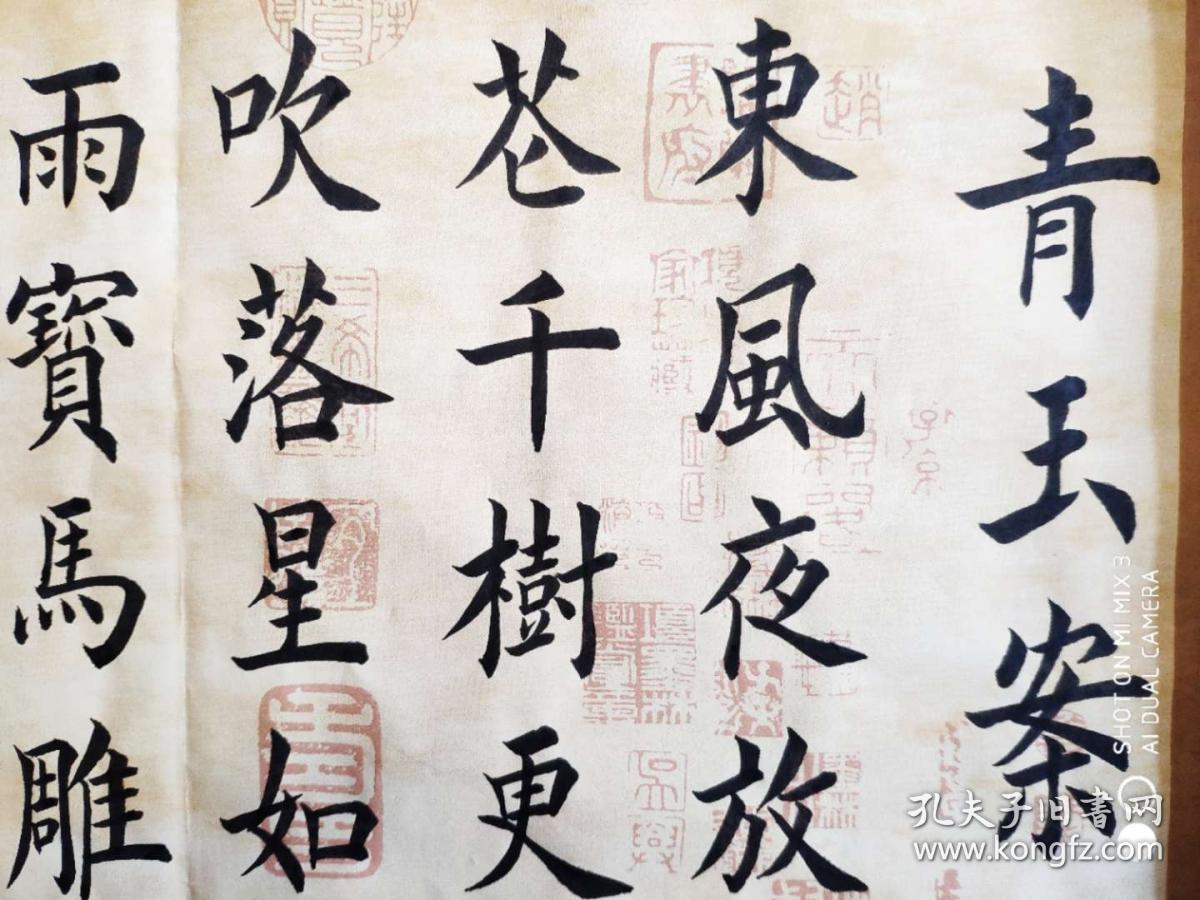 青玉案
東風夜放
花千樹更
吹落星如
雨寳馬雕
SHOT ON MI MIX 3
AI DUAL CAMERA
孔夫子旧书网
www.kongfz.com